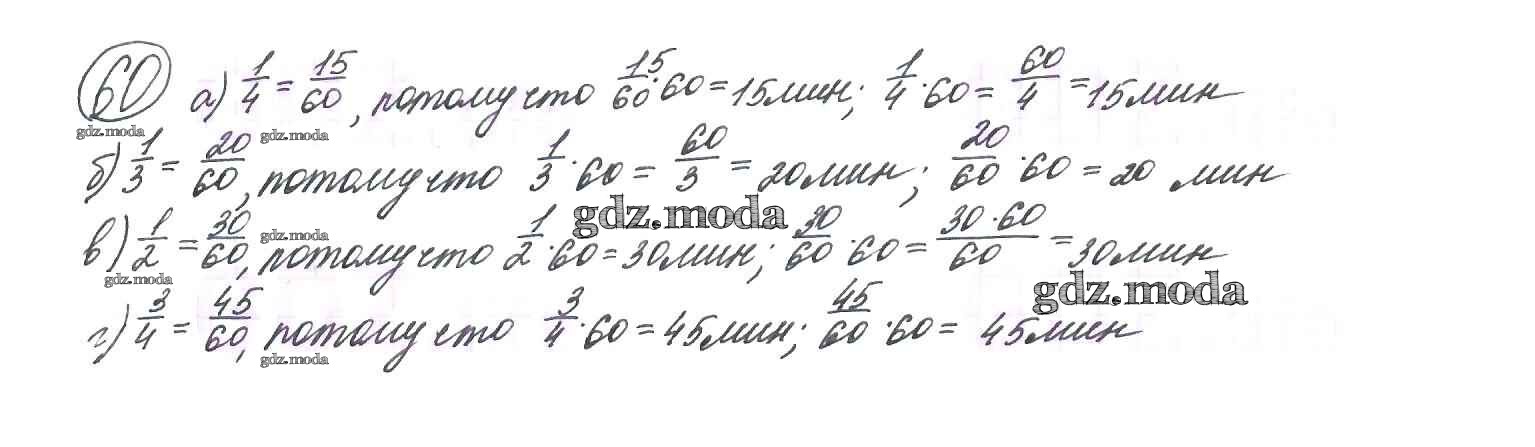 60 а) 1/4 = 15/60, потому что 15/60 · 60 = 15 мин; 1/4 · 60 = 60/4 = 15 мин
gdz.moda gdz.moda
б) 1/3 = 20/60, потому что 1/3 · 60 = 60/3 = 20 мин; 20/60 · 60 = 20 мин
gdz.moda
в) 1/2 = 30/60, потому что 1/2 · 60 = 30 мин; 30/60 · 60 = 30·60/60 = 30 мин
gdz.moda
gdz.moda gdz.moda
г) 3/4 = 45/60, потому что 3/4 · 60 = 45 мин; 45/60 · 60 = 45 мин
gdz.moda